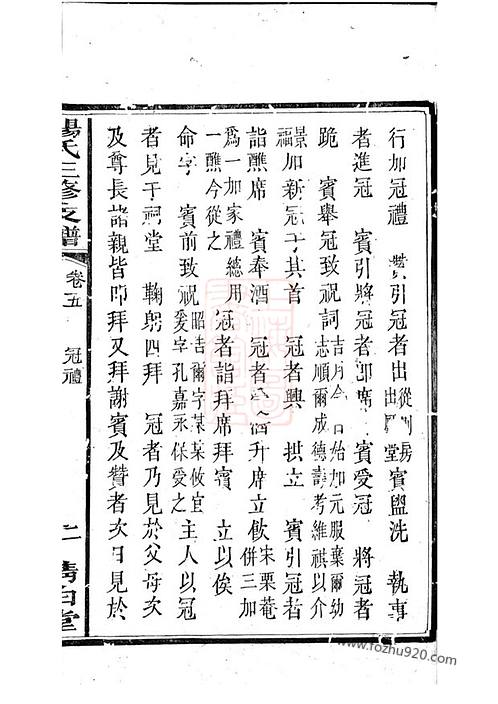 行加冠禮 贊引冠者出從房出堂賓盥洗 執事
者進冠 賓引將冠者即席 賓受冠 將冠者
跪 賓舉冠致祝詞吉月令日始加元服棄爾幼志順爾成德壽考維祺以介
景福加新冠于其首 冠者興 拱立 賓引冠者
詣醮席 賓奉酒 冠者受酒升席立飲宋栗菴併三加
為一加家禮總用一醮今從之 冠者詣拜席拜賓 立以俟
命字 賓前致祝昭告爾字某某攸宜爰字孔嘉永保受之 主人以冠
者見于祠堂 鞠躬四拜 冠者乃見於父母次
及尊長諸親皆叩拜又拜謝賓及贊者次日見於
楊氏三修支譜
卷五 冠禮
二
www.fozhu920.com